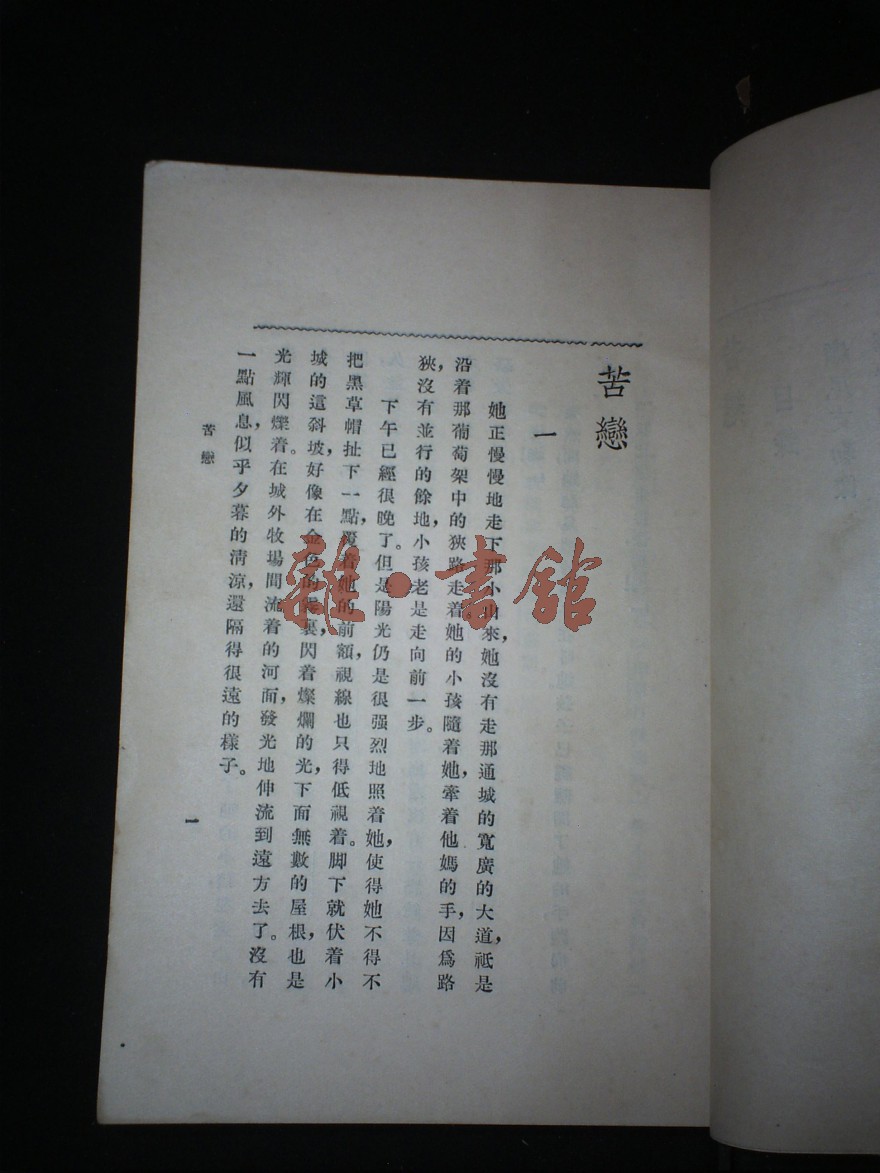 苦戀
一
她正慢慢地走下那小山來,她沒有走那通城的寬廣的大道,祗是
沿着那葡萄架中的狹路走着。她的小孩隨着她,牽着他媽的手,因爲路
狹,沒有並行的餘地,小孩老是走向前一步。
下午已經很晚了。但是陽光仍是很强烈地照着她,使得她不得不
把黑草帽扯下一點,覆着她的前額,視線也只得低視着。脚下就伏着小
城的這斜坡,好像在金色的霧裏閃着燦爛的光,下面無數的屋根,也是
光輝閃爍着。在城外牧場間流着的河面,發光地伸流到遠方去了。沒有
一點風息,似乎夕暮的淸涼,還隔得很遠的樣子。
苦戀
一
雜·書館